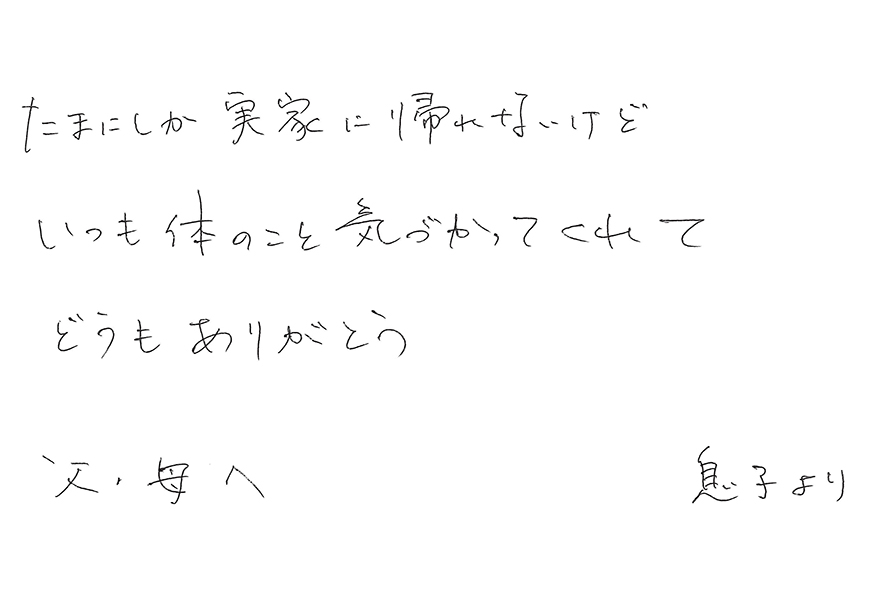 たまにしか実家に帰れないけど
いつも体のこと気づかってくれて
どうもありがとう
父・母へ 息子より